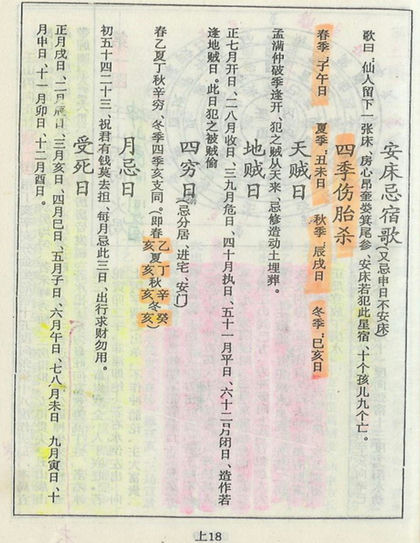 安床忌宿歌(又忌申日不安床)
歌曰:仙人留下一张床、房心昂奎娄箕尾参、安床若犯此星宿、十个孩儿九个亡。
四季伤胎杀
春季:子午日 夏季:丑未日 秋季:辰戌日 冬季:巳亥日
天贼日
孟满仲破季逢开、犯之贼从天来、忌修造动土埋葬。
地贼日
正七月开日、二八月收日、三九月危日、四十月执日、五十一月平日、六十二月闭日、造作若
逢地贼日。此日犯之被贼偷
四穷日(忌分居、进宅、安门)
春乙夏丁秋辛穷、冬季四季亥支同。(即春乙亥夏丁亥秋辛亥冬癸亥)
月忌日
初五十四二十三、祝君有钱莫去担、每月忌此三日、出行求财勿用。
受死日
正月戌日、二月辰日、三月亥日、四月巳日、五月子日、六月午日、七八月未日 九月寅日、十
月申日、十一月卯日、十二月酉日。
上18